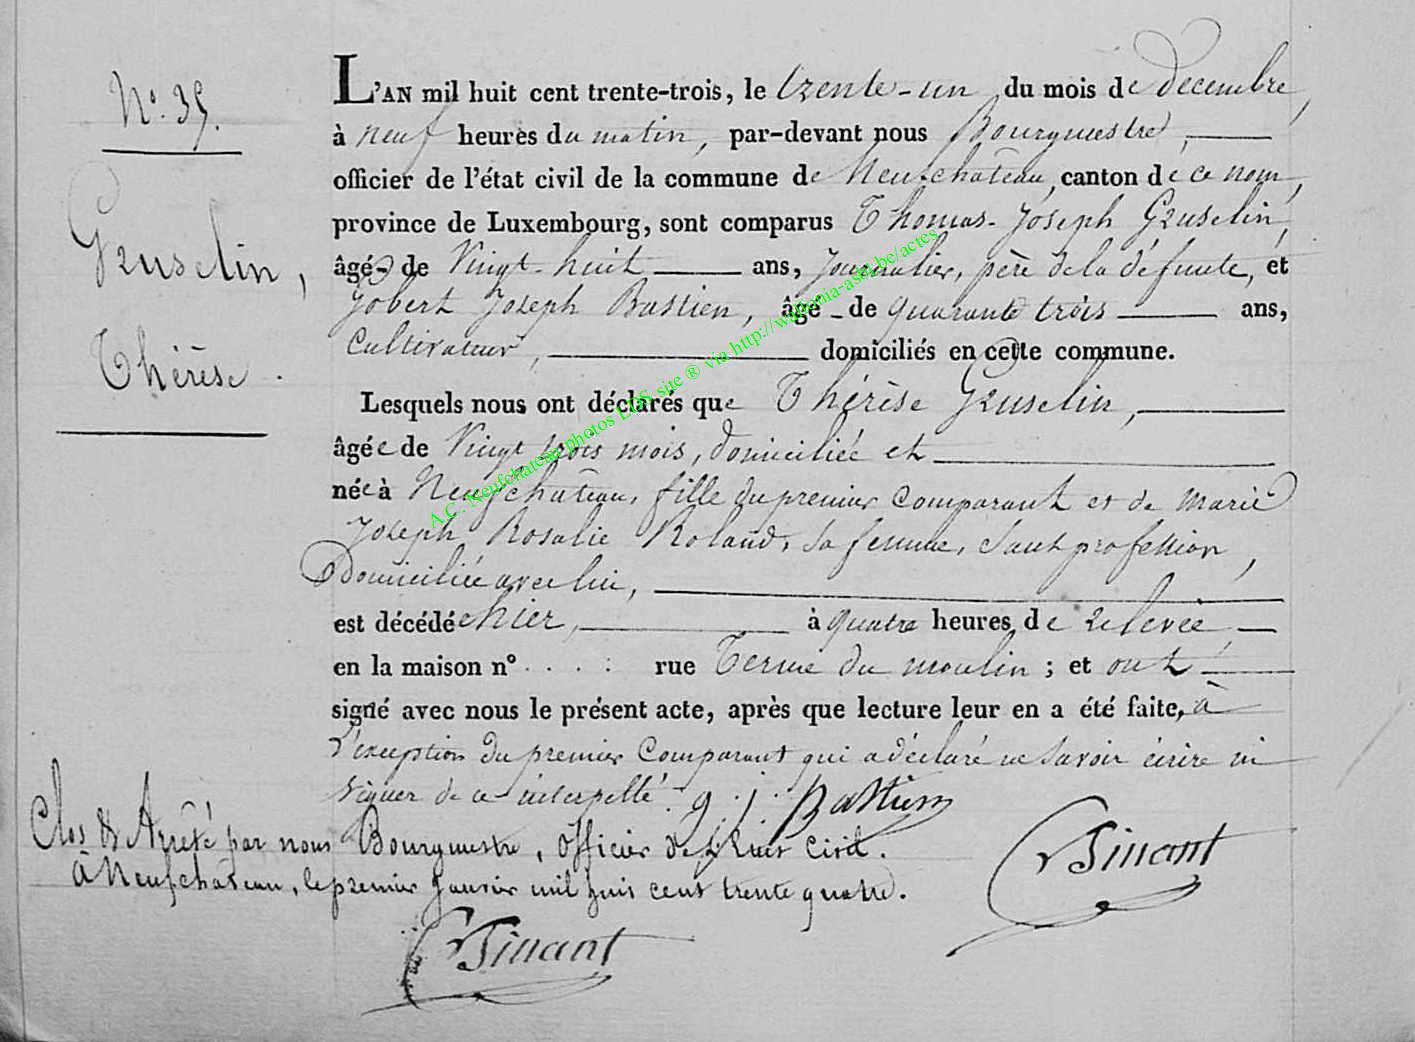 N.° 39.
Gruselin,
Thérèse.
L'AN mil huit cent trente-trois, le trente-un du mois de décembre,
à neuf heures du matin, par-devant nous Bourgmestre,
officier de l'état civil de la commune de Neufchâteau, canton de ce nom,
province de Luxembourg, sont comparus Thomas-Joseph Gruselin,
âgé de Vingt-huit ans, Journalier, père de la défunte, et
Jobert Joseph Bastien, âgé de quarante trois ans,
Cultivateur, domiciliés en cette commune.
Lesquels nous ont déclarés que Thérèse Gruselin,
âgée de Vingt trois mois, domiciliée et
née à Neufchâteau, fille du premier comparant et de marie
Joseph Rosalie Roland, sa femme, sans profession,
Domiciliée avec lui,
est décédée hier, à quatre heures de relevée,
en la maison n° . . . . : rue Terme du moulin ; et ont
signé avec nous le présent acte, après que lecture leur en a été faite, à
l'exception du premier Comparant qui a déclaré ne savoir écrire ni
signer de ce interpellé. g. j. Bastien
Clos & Arrêté par nous Bourgmestre, officier de l'État Civil.
à Neufchâteau, le premier Janvier mil huit cent trente quatre.
Dinant
Dinant
A.C. Neufchateau photos LDS site ® via http://wallonia-asbl.be/actes